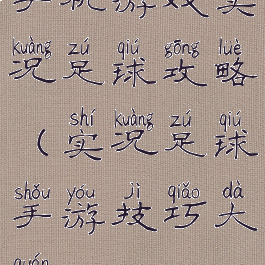 手机游戏实
kuàng zú qiú gōng lüè
况足球攻略
shí kuàng zú qiú
(实况足球
shǒu yóu jì qiǎo dà
手游技巧大
quán